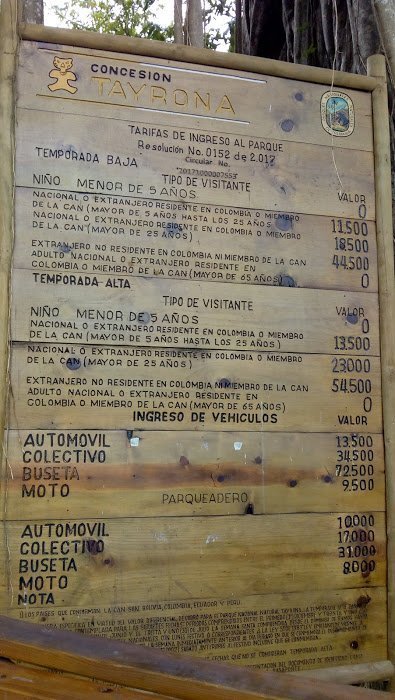 CONCESION
TAYRONA
TARIFAS DE INGRESO AL PARQUE
Resolución No. 0152 de 2.017
Circular No.
TEMPORADA BAJA
TIPO DE VISITANTE VALOR
NIÑO MENOR DE 5 AÑOS 0
NACIONAL O EXTRANJERO RESIDENTE EN COLOMBIA O MIEMBRO
DE LA CAN (MAYOR DE 5 AÑOS HASTA LOS 25 AÑOS) 11.500
NACIONAL O EXTRANJERO RESIDENTE EN COLOMBIA O MIEMBRO
DE LA CAN (MAYOR DE 25 AÑOS) 18.500
EXTRANJERO NO RESIDENTE EN COLOMBIA NI MIEMBRO DE LA CAN 44.500
ADULTO NACIONAL O EXTRANJERO RESIDENTE EN
COLOMBIA O MIEMBRO DE LA CAN (MAYOR DE 65 AÑOS) 0
TEMPORADA ALTA
TIPO DE VISITANTE VALOR
NIÑO MENOR DE 5 AÑOS 0
NACIONAL O EXTRANJERO RESIDENTE EN COLOMBIA O MIEMBRO
DE LA CAN (MAYOR DE 5 AÑOS HASTA LOS 25 AÑOS) 13.500
NACIONAL O EXTRANJERO RESIDENTE EN COLOMBIA O MIEMBRO
DE LA CAN (MAYOR DE 25 AÑOS) 23000
EXTRANJERO NO RESIDENTE EN COLOMBIA NI MIEMBRO DE LA CAN 54.500
ADULTO NACIONAL O EXTRANJERO RESIDENTE EN
COLOMBIA O MIEMBRO DE LA CAN (MAYOR DE 65 AÑOS) 0
INGRESO DE VEHICULOS VALOR
AUTOMOVIL 13.500
COLECTIVO 34.500
BUSETA 72.500
MOTO 9.500
PARQUEADERO
AUTOMOVIL 10000
COLECTIVO 17.000
BUSETA 31.000
MOTO 8000
NOTA
1) LOS PAISES QUE CONFORMAN LA CAN SON: BOLIVIA, COLOMBIA, ECUADOR Y PERU.